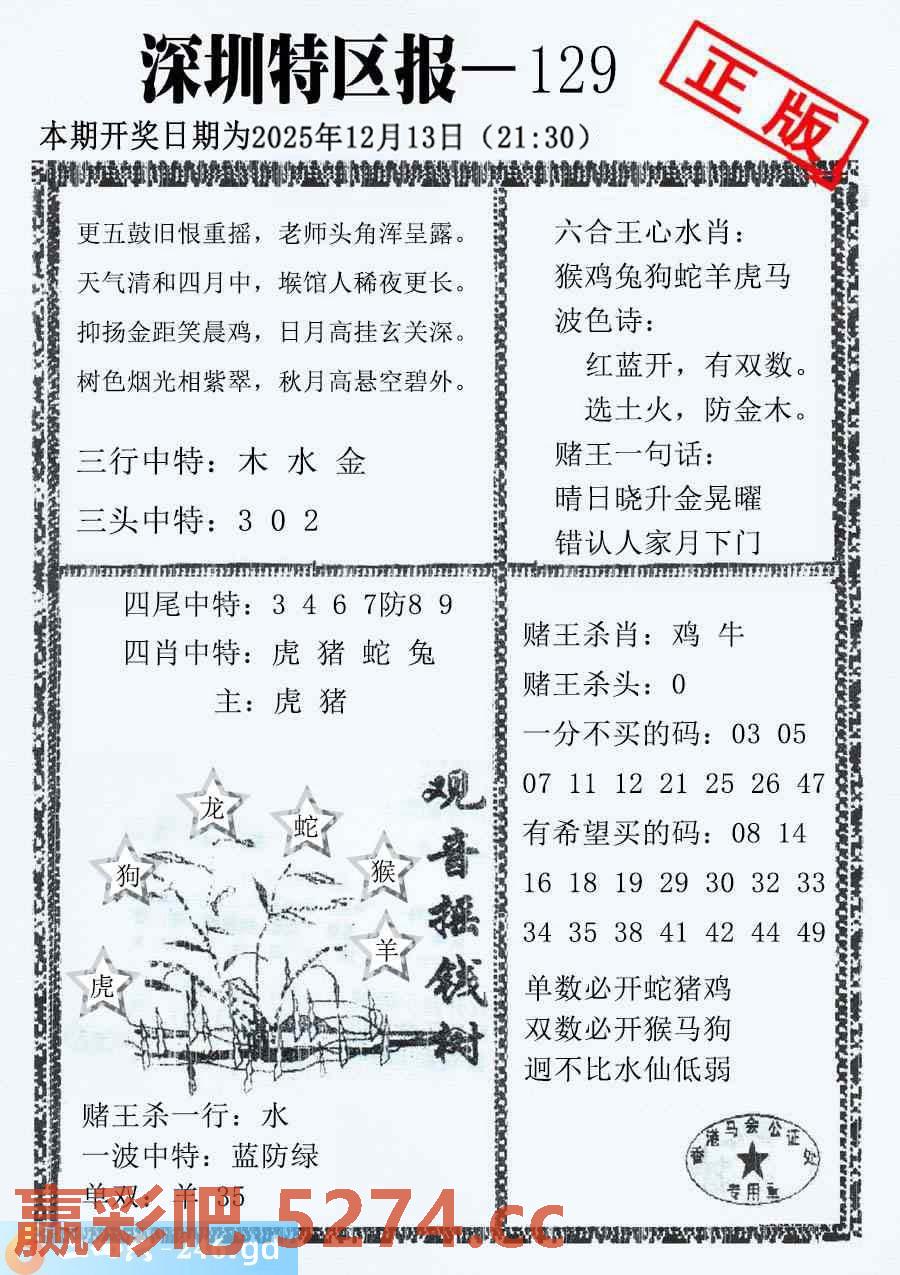 深圳特区报—129
正版
本期开奖日期为2025年12月13日（21:30）
更五鼓旧恨重摇，老师头角浑呈露。
天气清和四月中，堠馆人稀夜更长。
抑扬金距笑晨鸡，日月高挂玄关深。
树色烟光相紫翠，秋月高悬空碧外。
三行中特：木 水 金
三头中特：3 0 2
六合王心水肖：
猴鸡兔狗蛇羊虎马
波色诗：
红蓝开，有双数。
选土火，防金木。
赌王一句话：
晴日晓升金晃曜
错认人家月下门
四尾中特：3 4 6 7防8 9
四肖中特：虎 猪 蛇 兔
主：虎 猪
龙
蛇
狗
猴
羊
虎
观音摇钱树
赌王杀一行：水
一波中特：蓝防绿
单双：羊 35
赌王杀肖：鸡 牛
赌王杀头：0
一分不买的码：03 05
07 11 12 21 25 26 47
有希望买的码：08 14
16 18 19 29 30 32 33
34 35 38 41 42 44 49
单数必开蛇猪鸡
双数必开猴马狗
迥不比水仙低弱
香港马会公证处
专用章
赢彩吧 5274.cc